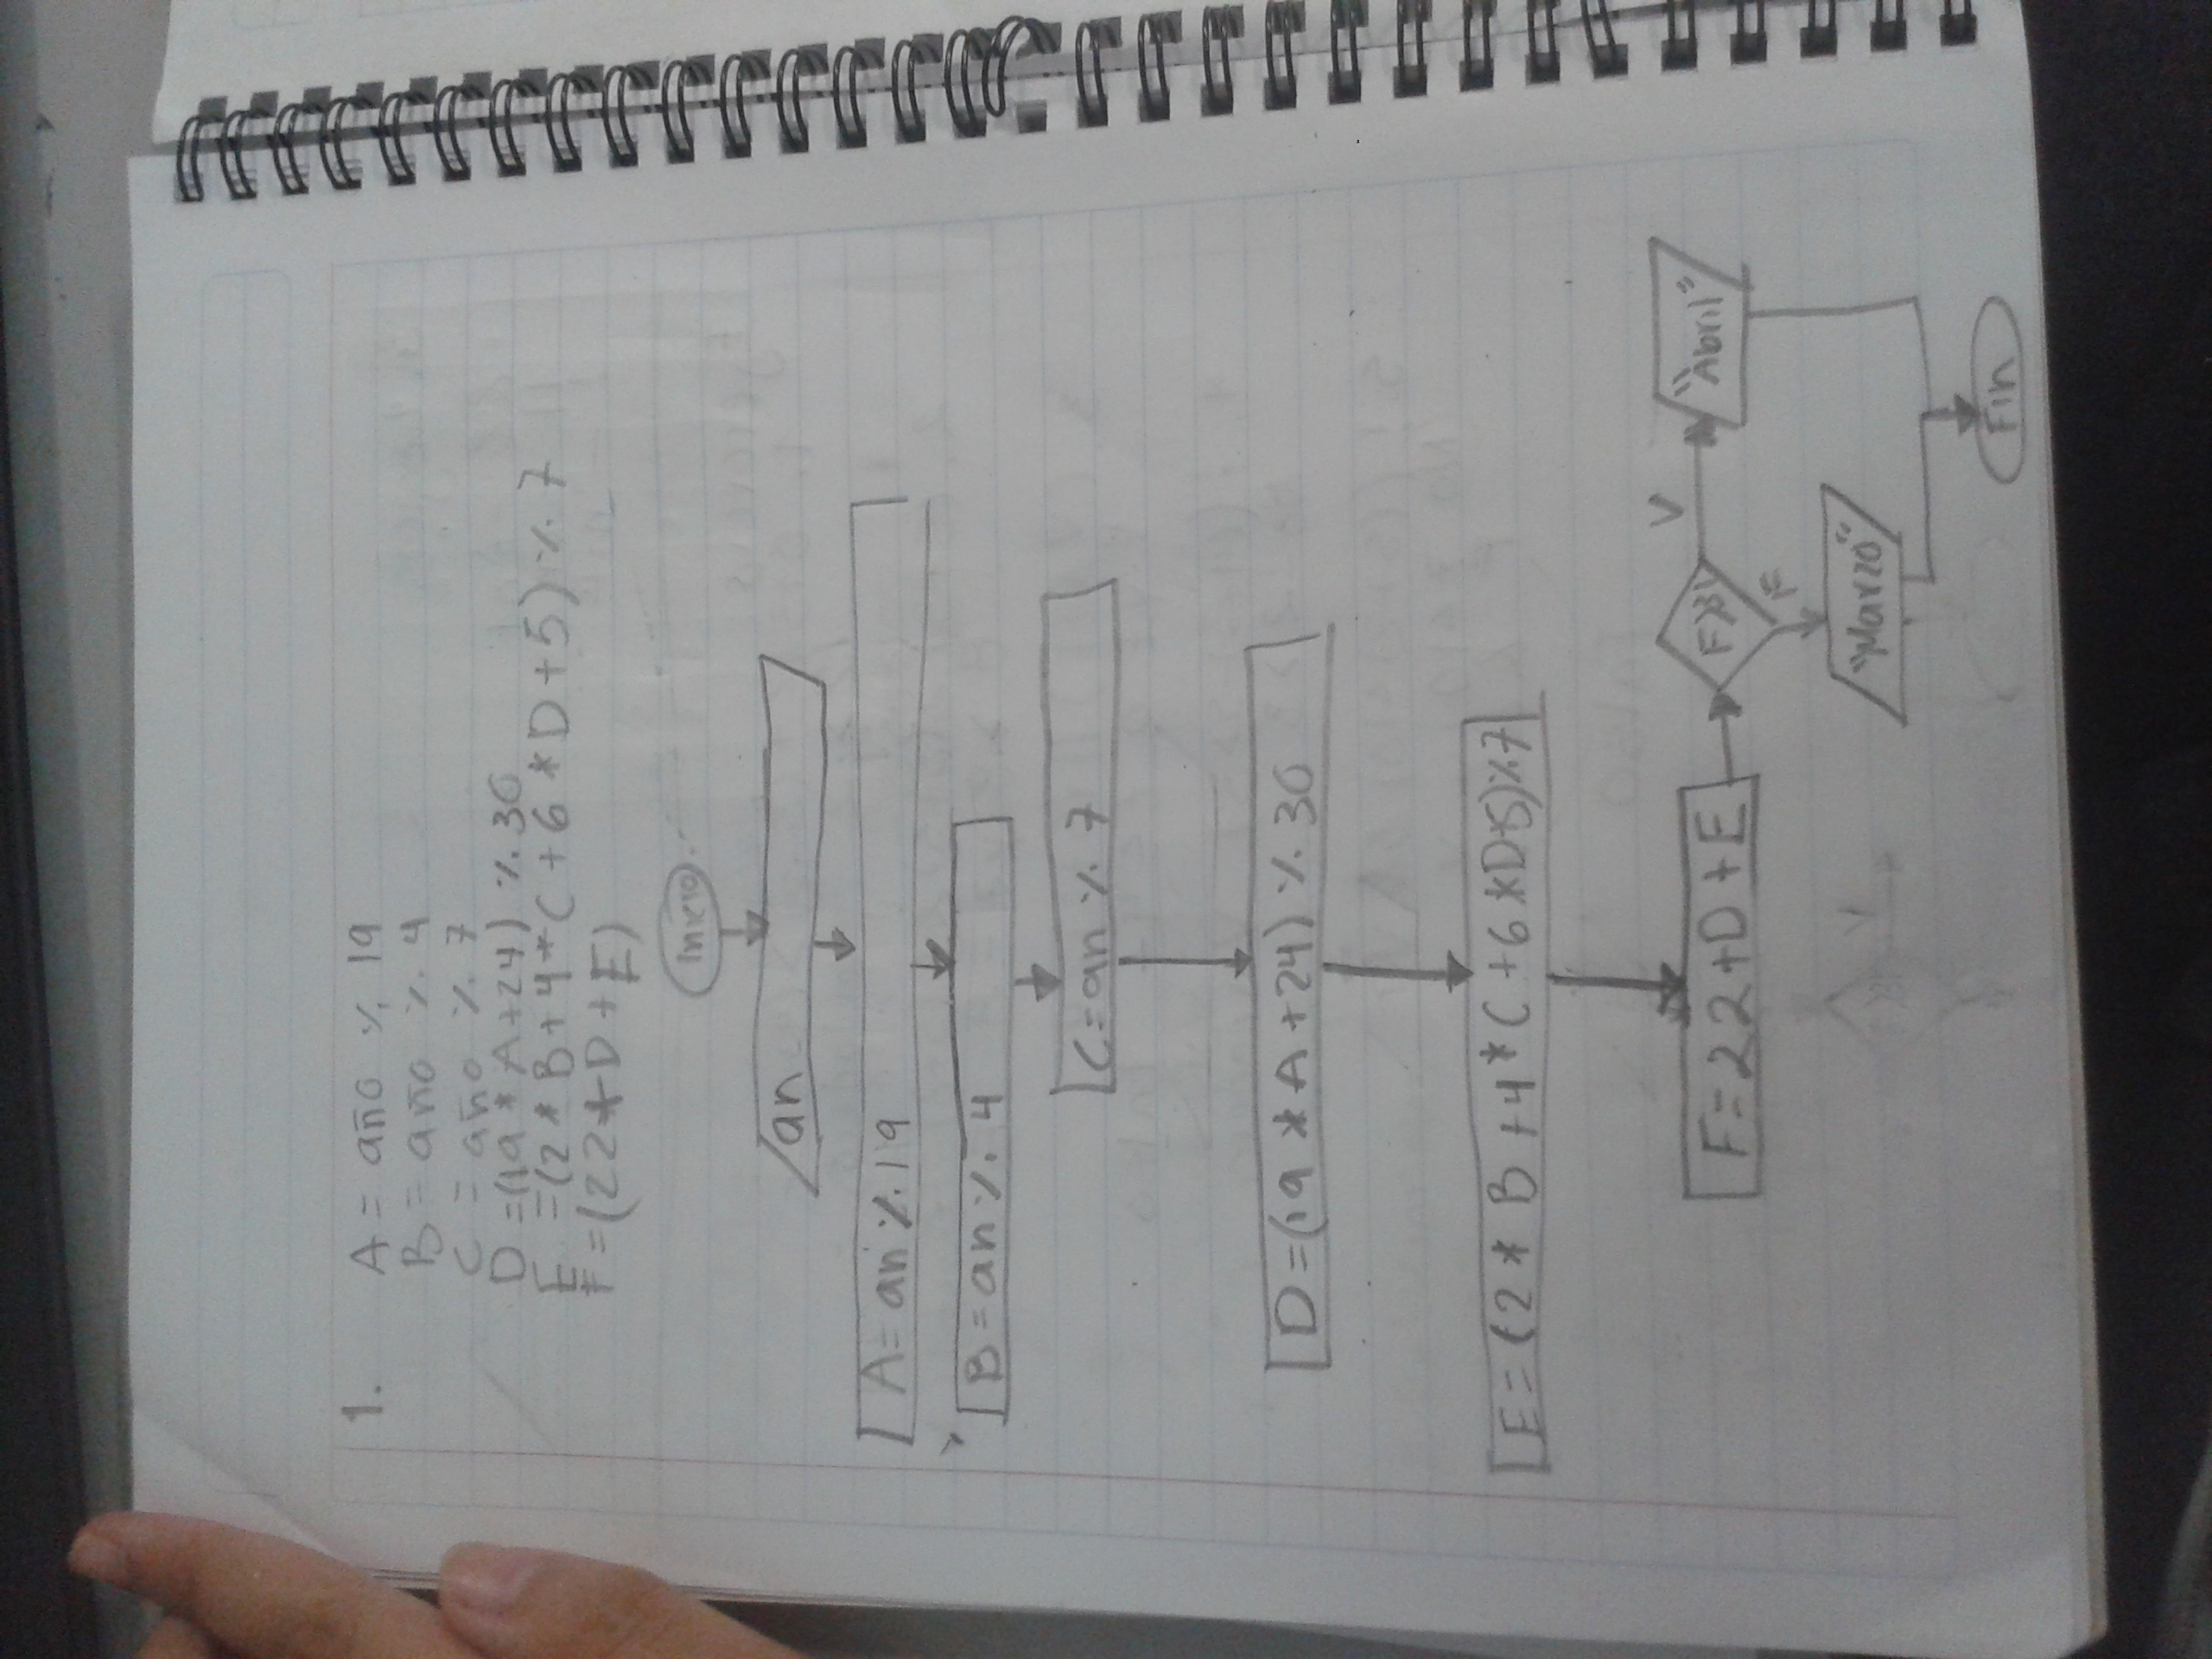 1. A = año % 19
B = año % 4
C = año % 7
D = (19 * A + 24) % 30
E = (2 * B + 4 * C + 6 * D + 5) % 7
F = (22 + D + E)
Inicio
an
A = an % 19
B = an % 4
C = an % 7
D = (19 * A + 24) % 30
E = (2 * B + 4 * C + 6 * D + 5) % 7
F = 22 + D + E
V
"Abril"
F
"Marzo"
Fin